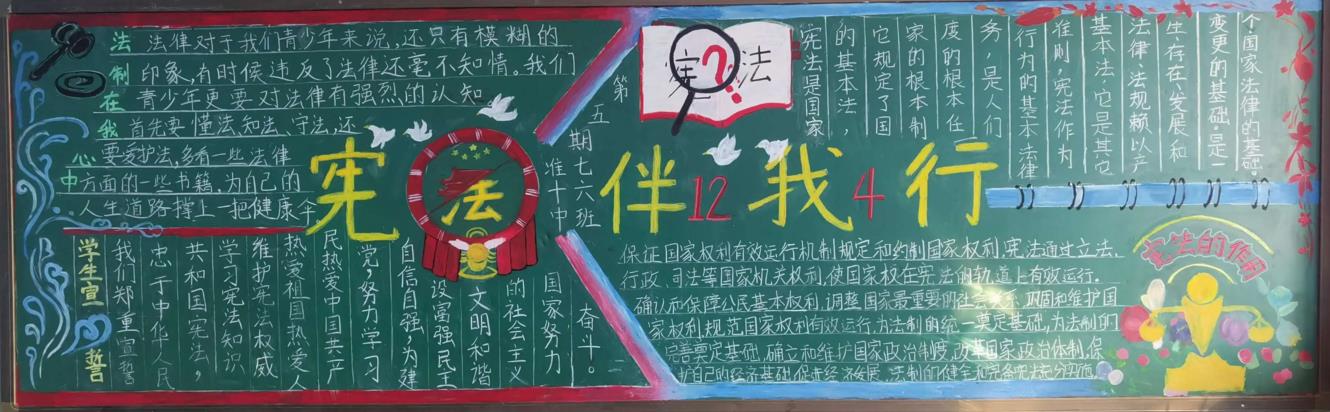 法制在我心中
法律对于我们青少年来说,还只有模糊的
印象,有时候违反了法律还毫不知情。我们
青少年更要对法律有强烈的认知
首先要懂法、知法、守法,还
要爱护法,多看一些法律
方面的一些书籍,为自己的
人生道路撑上一把健康伞
宪法伴我行
12 4
第五期七六班
淮十中
学生宣誓
我们郑重宣誓
忠于中华人民
共和国宪法,
学习宪法知识
维护宪法权威
热爱祖国热爱人
民热爱中国共产
党,努力学习
自信自强,为建
设富强民主
文明和谐
的社会主义
国家努力
奋斗。
宪?法
宪法是国家
的基本法,
它规定了国
家的根本制
度的根本任
务,是人们
行为的基本法律
准则,宪法作为
基本法,它是其它
法律、法规赖以产
生存在、发展和
变更的基础,是一
个国家法律的基础。
保证国家权利有效运行机制规定和约制国家权利,宪法通过立法、
行政、司法等国家机关权利,使国家权在宪法的轨道上有效运行。
确认和保障公民基本权利,调整国家最重要的社会关系,巩固和维护国
家权利,规范国家权利有效运行,为法制的统一奠定基础,为法制们
完善奠定基础,确立和维护国家政治制度,改革国家政治体制,保
护自己的经济基础,促进经济发展,法制的健全和完备宪法充分实施。
宪法的作用